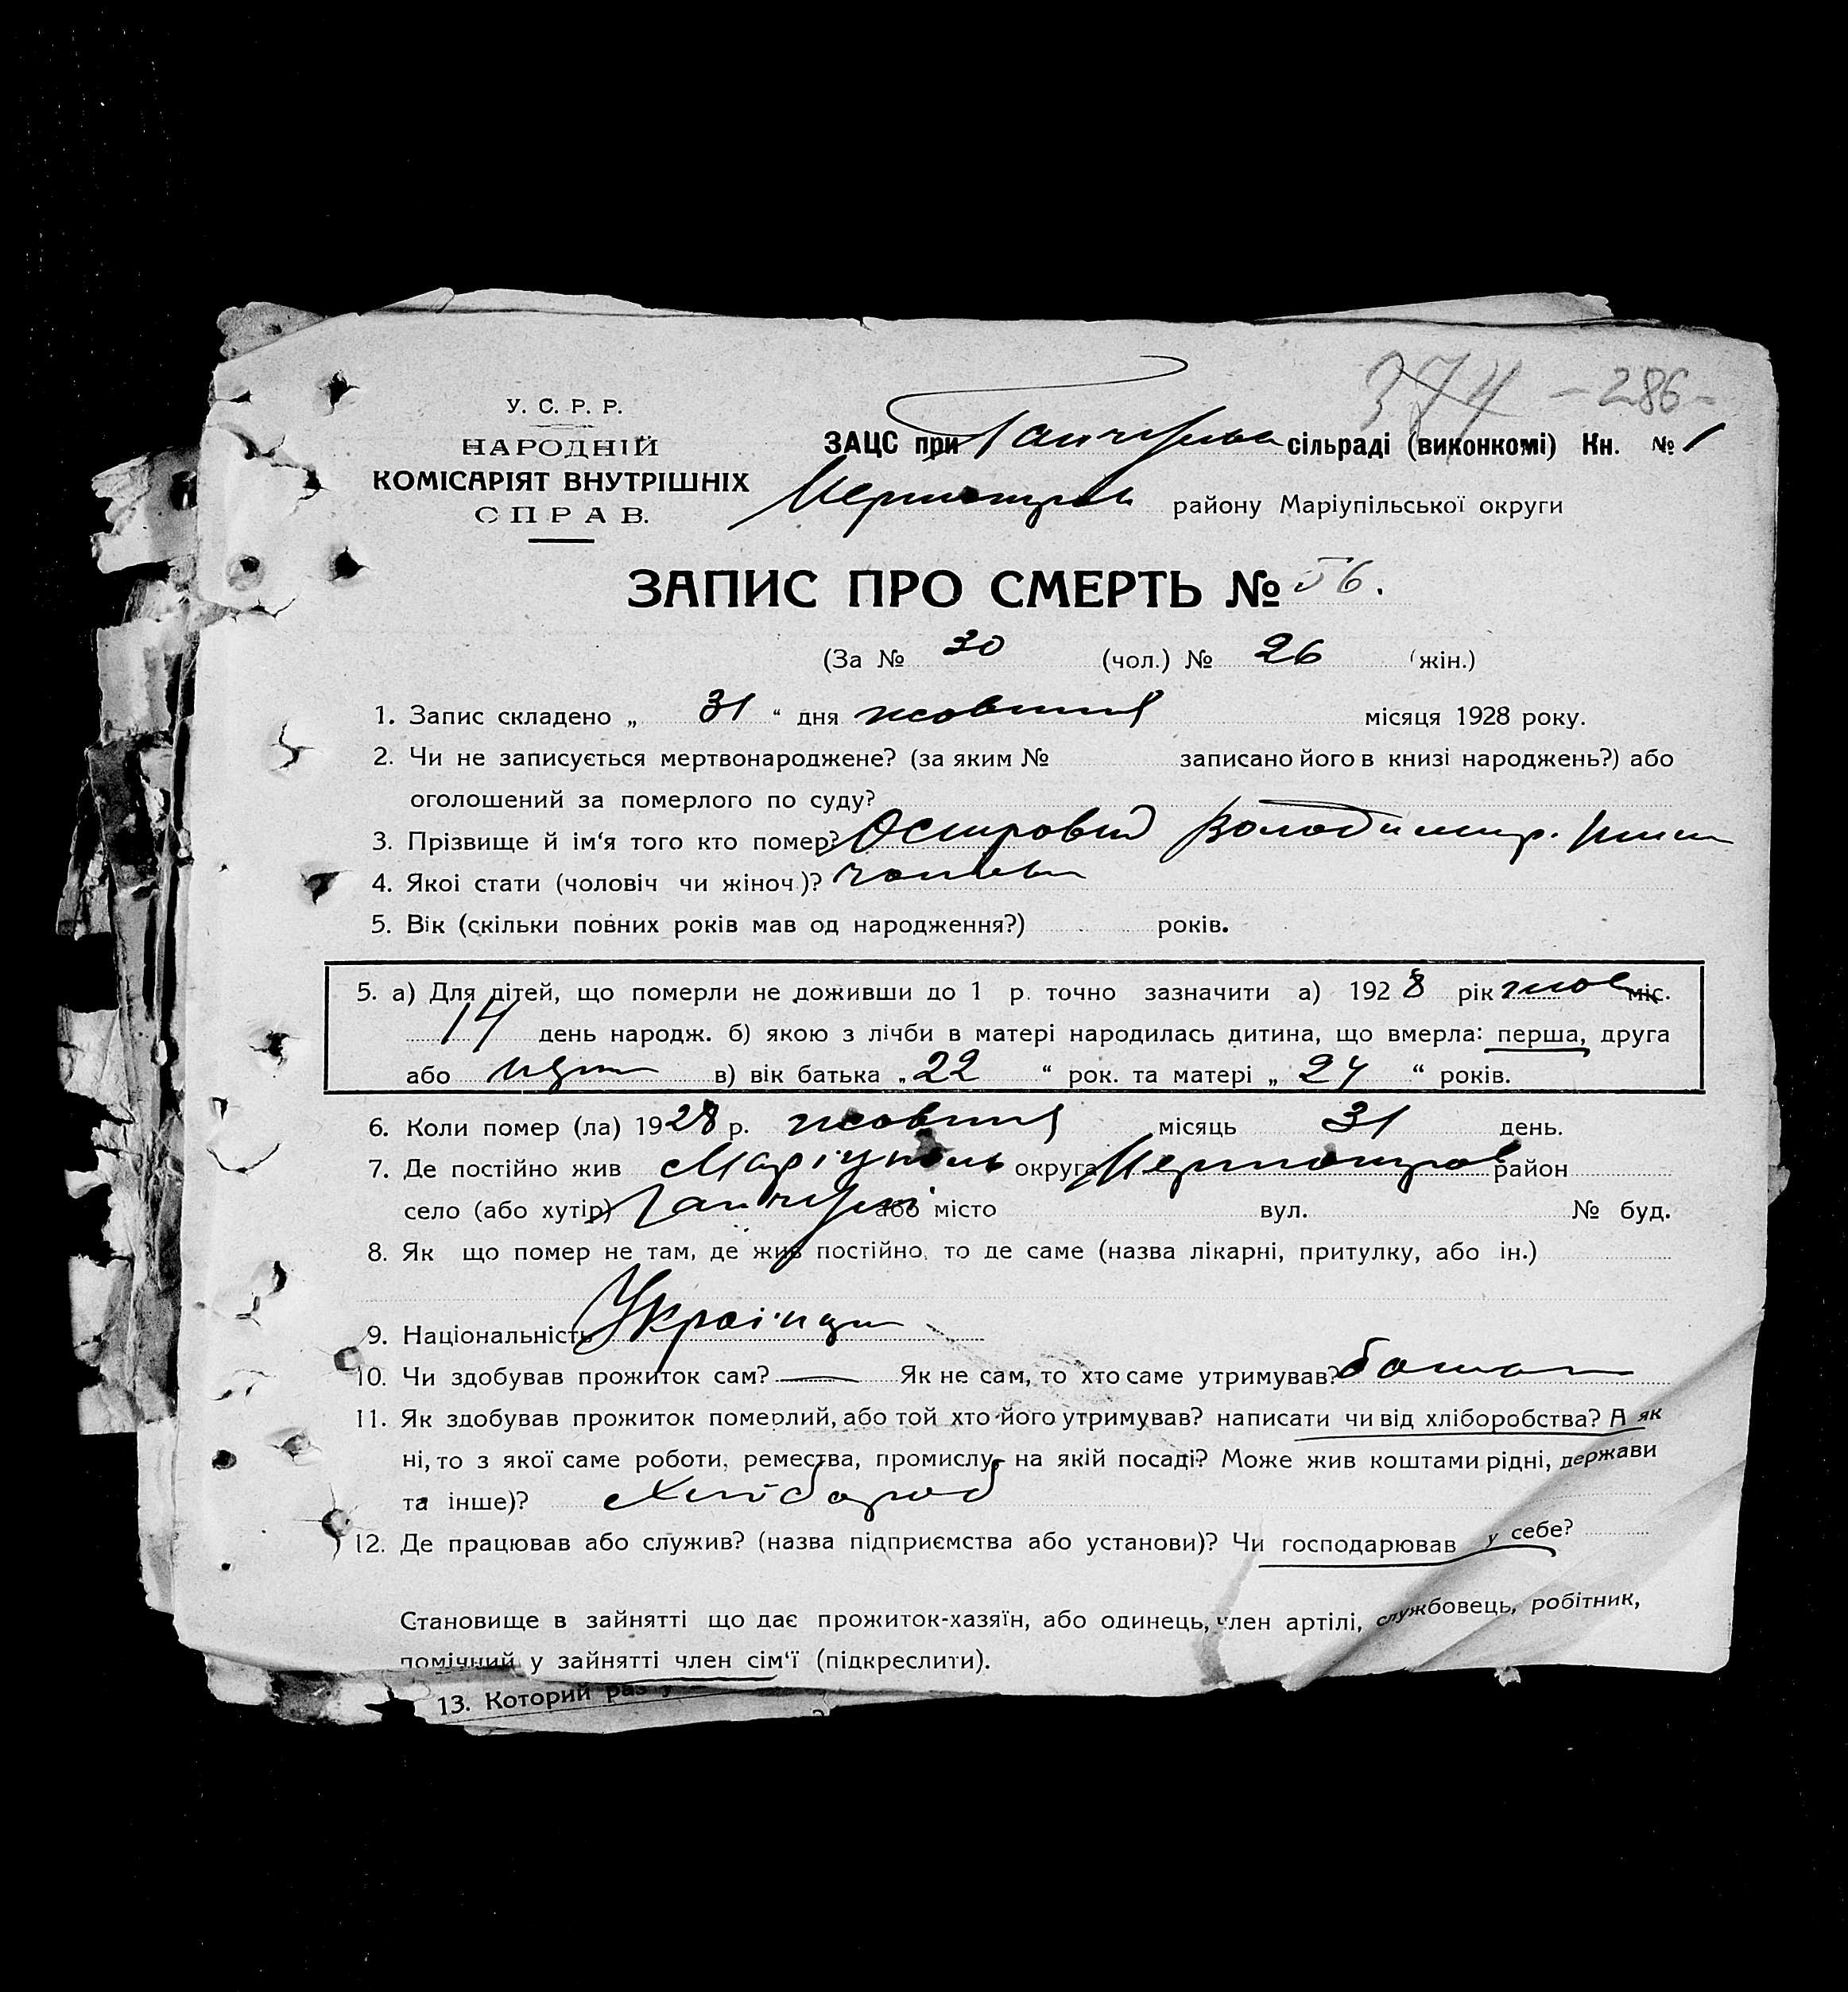 374 - 286 -
У. С. Р. Р.
НАРОДНІЙ
КОМІСАРІЯТ ВНУТРІШНІХ
СПРАВ.
ЗАЦС при сільраді (виконкомі) Кн. № 1
району Маріупільської округи
ЗАПИС ПРО СМЕРТЬ № 56.
(За № 30 (чол.) № 26 (жін.)
1. Запис складено „ 31 “ дня жовтня місяця 1928 року.
2. Чи не записується мертвонароджене? (за яким № записано його в книзі народжень?) або
оголошений за померлого по суду?
3. Прізвище й ім‘я того кто помер? Володимир.
4. Якоі стати (чоловіч чи жіноч.)?
5. Вік (скільки повних років мав од народження?) років.
5. а) Для дітей, що померли не доживши до 1 р. точно зазначити а) 1928 рік жов міс.
14 день народж. б) якою з лічби в матері народилась дитина, що вмерла: перша, друга
або в) вік батька „ 22 “ рок. та матері „ 24 “ років.
6. Коли помер (ла) 1928 р. жовтня місяць 31 день.
7. Де постійно жив Маріуполь округа район
село (або хутір) або місто вул. № буд.
8. Як що помер не там, де жив постійно, то де саме (назва лікарні, притулку, або ін.)
9. Національність
10. Чи здобував прожиток сам? — Як не сам, то хто саме утримував?
11. Як здобував прожиток померлий, або той хто його утримував? написати чи від хліборобства? А як
ні, то з якої саме роботи, ремества, промислу, на якій посаді? Може жив коштами рідні, держави
та інше)? Хлібороб
12. Де працював або служив? (назва підприємства або установи)? Чи господарював у себе?
Становище в зайнятті що дає прожиток-хазяїн, або одинець, член артілі, службовець, робітник,
помічний у зайнятті член сім‘ї (підкреслити).
13. Которий раз у